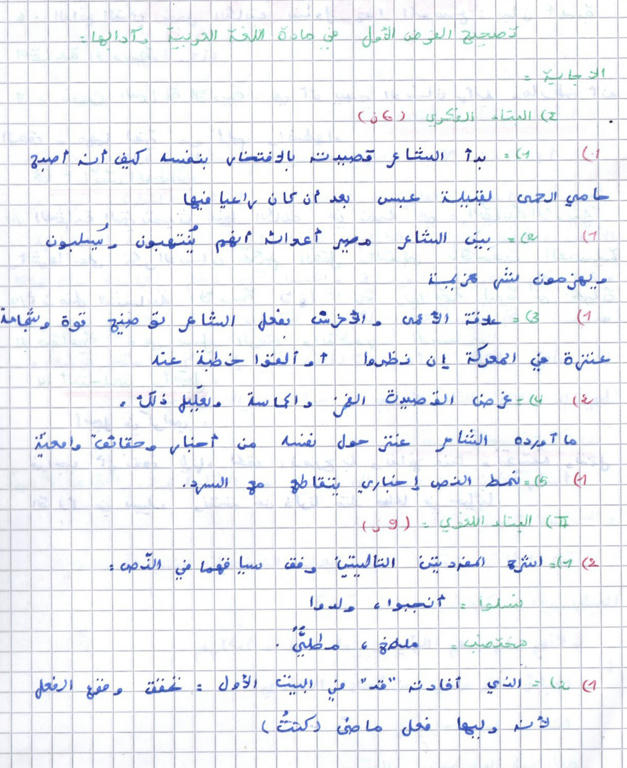 تصحيح الفرض الأول في مادة اللغة العربية وآدابها:
الاجابة =
2) البناء الفكري (6ن)
1) 1) = بدأ الشاعر قصيدته بالافتخار بنفسه كيف أنه أصبح
حامي الحمى لقبيلة عبس بعد أن كان راعيا فيها
1) 2) = بين الشاعر مصير أعدائه أنهم يُنتهبون ويُسلبون
ويهزمون شر هزيمة
1) 3) = علاقة الأعمى والأخرس بفعل الشاعر توضيح قوة وشجاعة
عنترة في المعركة إن نظروا أو ألقوا خطبة عنه
2) 4) = غرض القصيدة الفخر والحماسة وتعليل ذلك .
ما أورده الشاعر عنتر حول نفسه من أخبار وحقائق واقعية
1) 5) = نمط النص إخباري يتقاطع مع السرد.
II) البناء اللغوي = (9ن)
2) 1) = اشرح المفردتين التاليتين وفق سياقهما في النّص :
نسلوا = أنجبوا ، ولدوا
مختضب = ملطخ ، مطليٌّ .
1) 2) = الذي أفادته "قد" في البيت الأول : تحقق وقوع الفعل
لأنه وليها فعل ماضي (كنتُ)